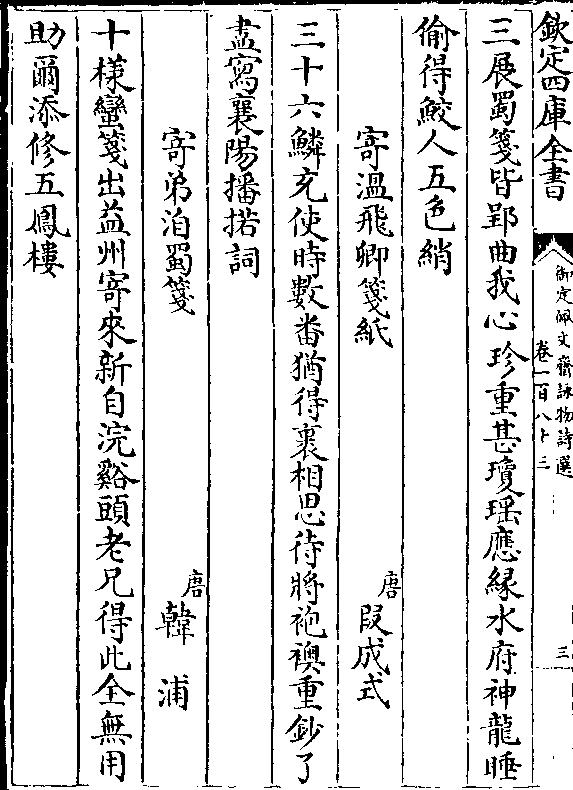 欽定四庫全書
御定佩文齋詠物詩選
卷一百八十三
三
三展蜀箋皆郢曲我心珍重甚瓊瑶應緣水府神龍睡
偷得鮫人五色綃
寄溫飛卿箋紙
唐
段成式
三十六鱗充使時數番猶得裹相思待將袍襖重鈔了
盡寫襄陽播掿詞
寄弟洎蜀箋
唐
韓浦
十樣蠻箋出益州寄來新自浣谿頭老兄得此全無用
助爾添修五鳳樓